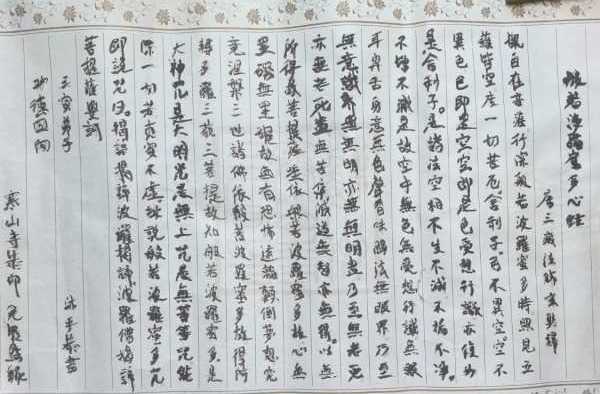 般若波羅蜜多心經
唐三藏法師玄奘譯
觀自在菩薩行深般若波羅蜜多時照見五
蘊皆空度一切苦厄舍利子色不異空空不
異色色即是空空即是色受想行識亦復如
是舍利子是諸法空相不生不滅不垢不淨
不增不減是故空中無色無受想行識無眼
耳鼻舌身意無色聲香味觸法無眼界乃至
無意識界無無明亦無無明盡乃至無老死
亦無老死盡無苦集滅道無智亦無得以無
所得故菩提薩埵依般若波羅蜜多故心無
罣礙無罣礙故無有恐怖遠離顛倒夢想究
竟涅槃三世諸佛依般若波羅蜜多故得阿
耨多羅三藐三菩提故知般若波羅蜜多是
大神咒是大明咒是無上咒是無等等咒能
除一切苦真實不虛故說般若波羅蜜多咒
即說咒曰揭諦揭諦波羅揭諦波羅僧揭諦
菩提薩婆訶
弟子
功德回向
寒山寺